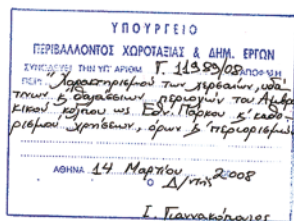 ΥΠΟΥΡΓΕΙΟ
ΠΕΡΙΒΑΛΛΟΝΤΟΣ ΧΩΡΟΤΑΞΙΑΣ & ΔΗΜ. ΕΡΓΩΝ
ΣΥΝΟΔΕΥΕΙ ΤΗΝ ΥΠ' ΑΡΙΘΜ. Γ. 11989/08 ΑΠΟΦΑΣΗ
ΠΕΡΙ "Χαρακτηρισμού των χερσαίων, υδά
τινων & θαλασσίων περιοχών του Αμβρα
κικού κόλπου ως Εθν. Πάρκου & καθο
ρισμού χρήσεων, όρων & περιορισμών
ΑΘΗΝΑ 14 Μαρτίου 2008
Ο Δ/ντής
Ι. Γιαννακόπουλος